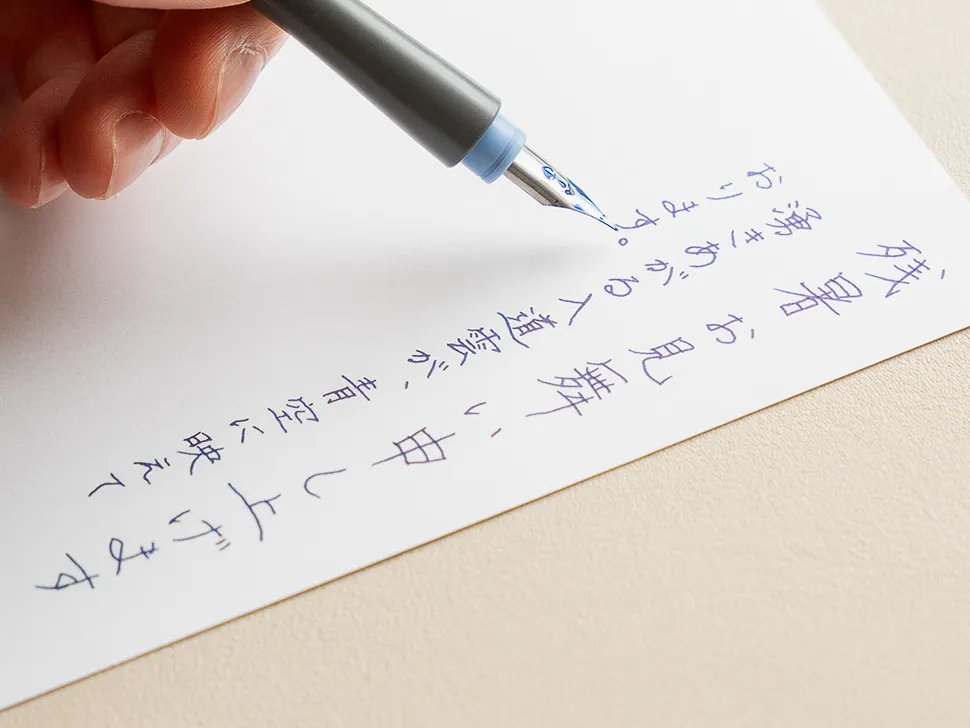 残暑お見舞い申し上げます
湧きあがる入道雲が、青空に映えて
おります。